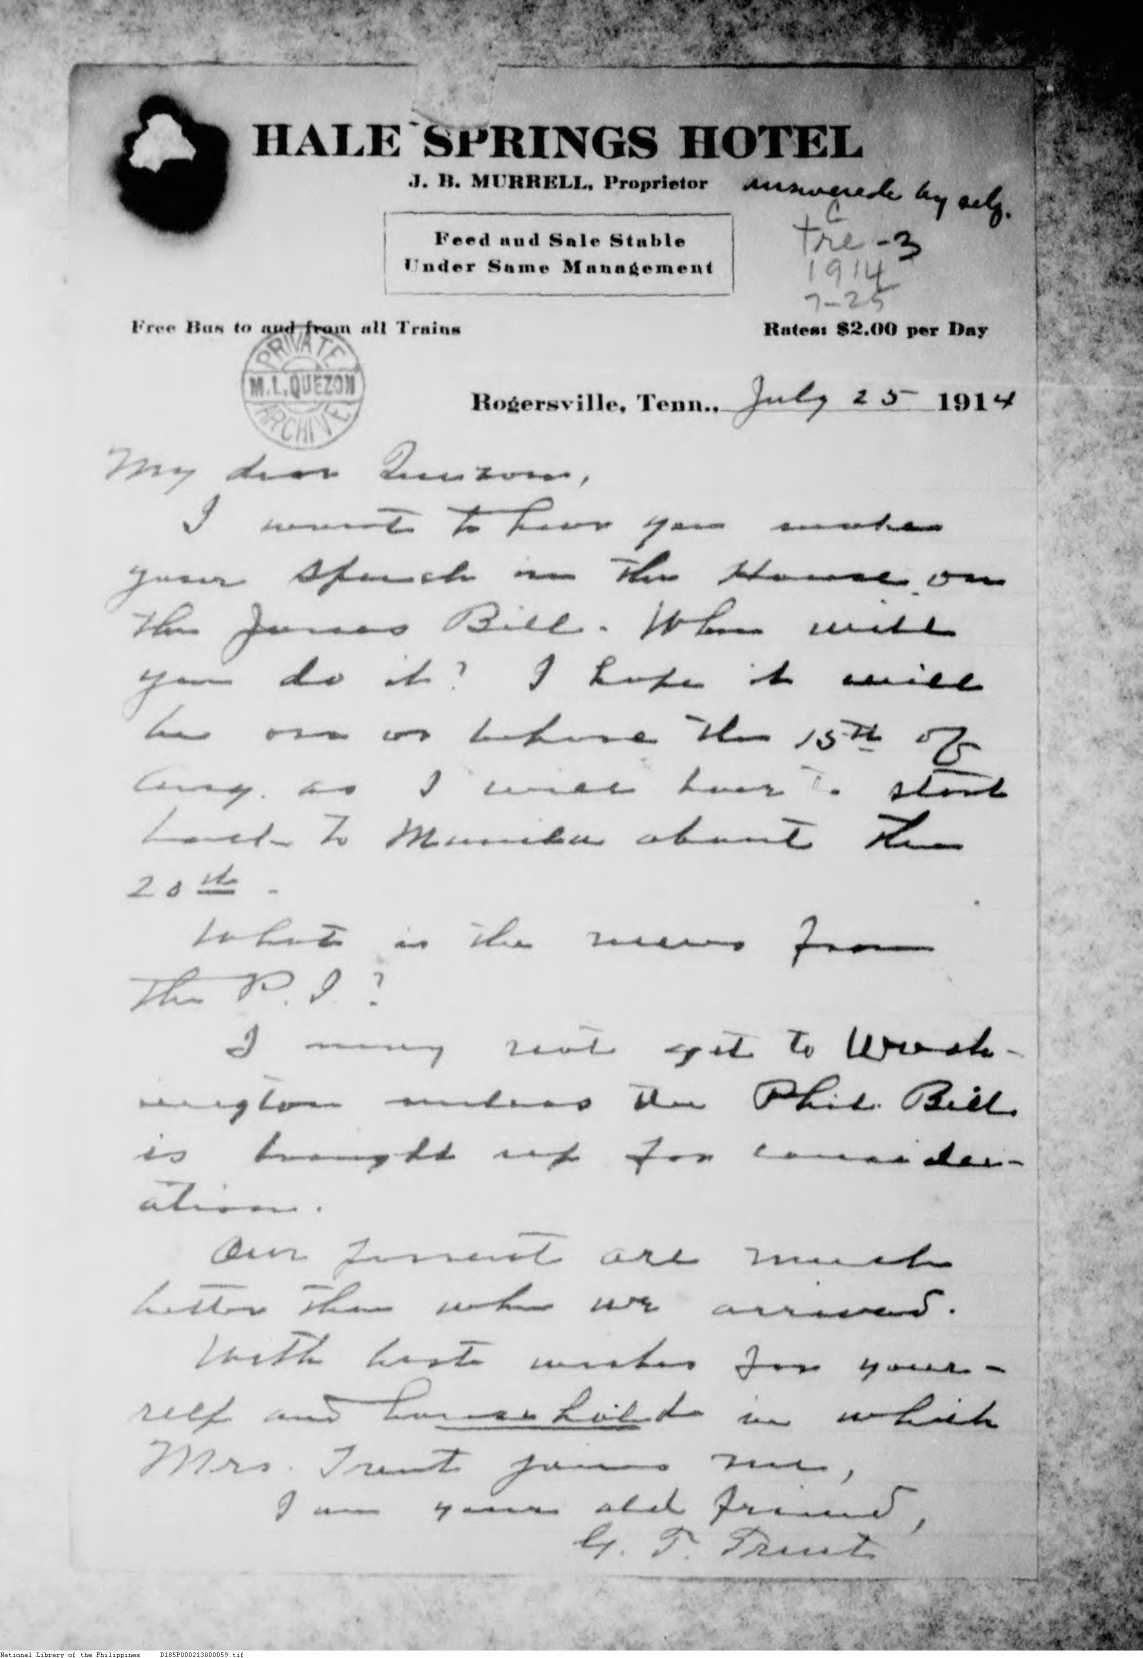 HALE SPRINGS HOTEL
J. B. MURRELL, Proprietor
answered by self.
Feed and Sale Stable
Under Same Management
C
tre-3
1914
7-25
Free Bus to and from all Trains
Rates: $2.00 per Day
PRIVATE
M.L.QUEZON
ARCHIVE
Rogersville, Tenn., July 25 1914
My dear Quezon,
I want to hear you make
your speech in the House on
the Jones Bill. When will
you do it? I hope it will
be on or before the 15th of
Aug. as I will have to start
back to Manila about the
20th.
What is the news from
the P. I.?
I may not get to Wash-
ington unless the Phil. Bill
is brought up for consider-
ation.
Our are much
better than when we arrived.
With best wishes for your-
self and household in which
Mrs. Trent joins me,
I am your old friend,
G. T. Trent
National Library of the Philippines D185P000213800059.tif